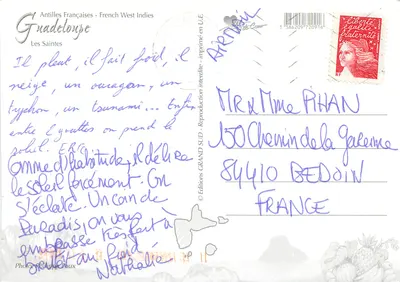 Antilles Françaises - French West Indies
Guadeloupe
Les Saintes
Il pleut, il fait froid, il
neige, un ouragan, un
typhon, un tsunami... Enfin
entre 2 gouttes on prend le
soleil. ERIC
Comme d'habitude, il délire
le soleil forcément. On
s'éclate. Un coin de
Paradis, on vous
embrasse très fort à
Nathalie
© Editions GRAND SUD - Reproduction interdite - imprimé en U.E.
Par avion
liberté
égalité
fraternité
MR & Mme PIHAN
150 Chemin de la garenne
84410 BEDOIN
FRANCE